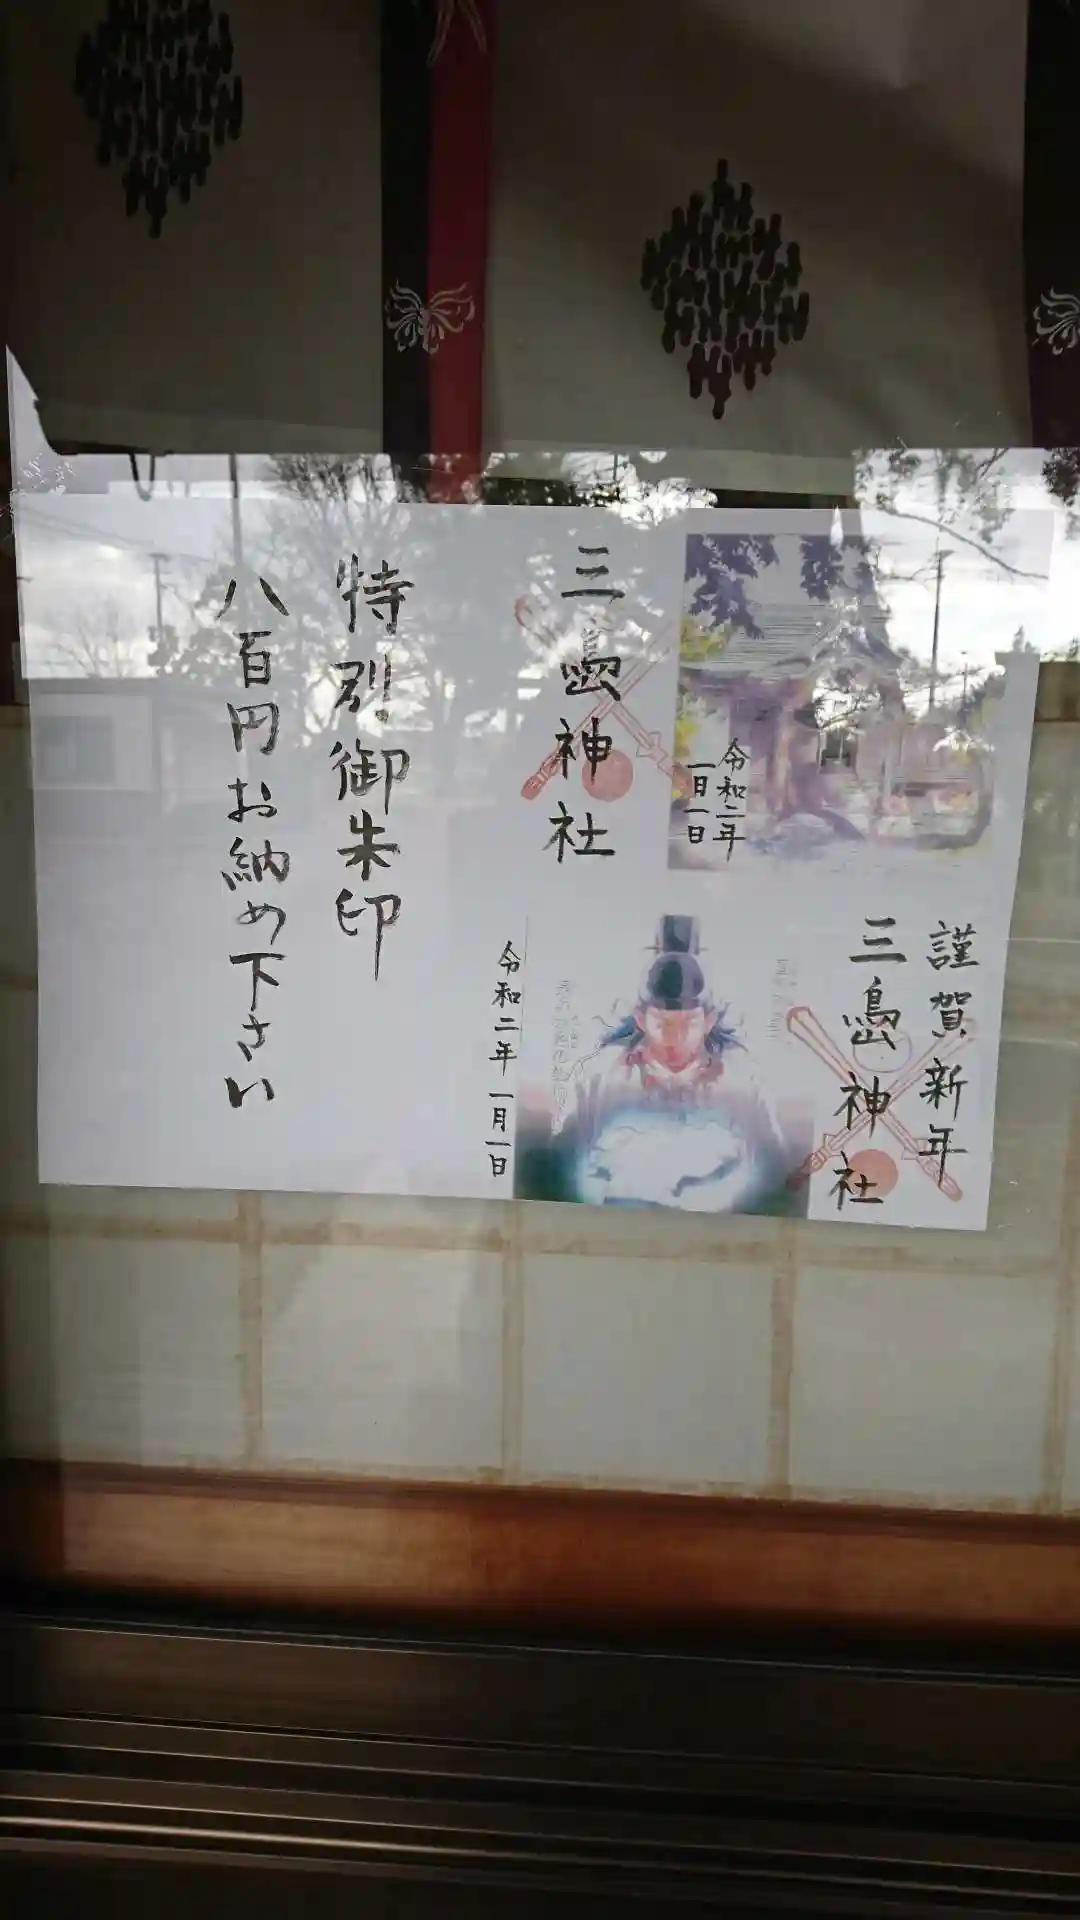 令和二年
一月一日
三嶋神社
謹賀新年
三嶋神社
令和二年一月一日
特別御朱印
八百円お納め下さい